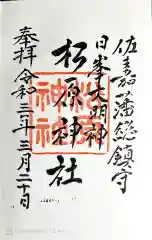 佐嘉藩総鎮守
日峯大明神
松原神社
奉拝 令和三年三月二十日